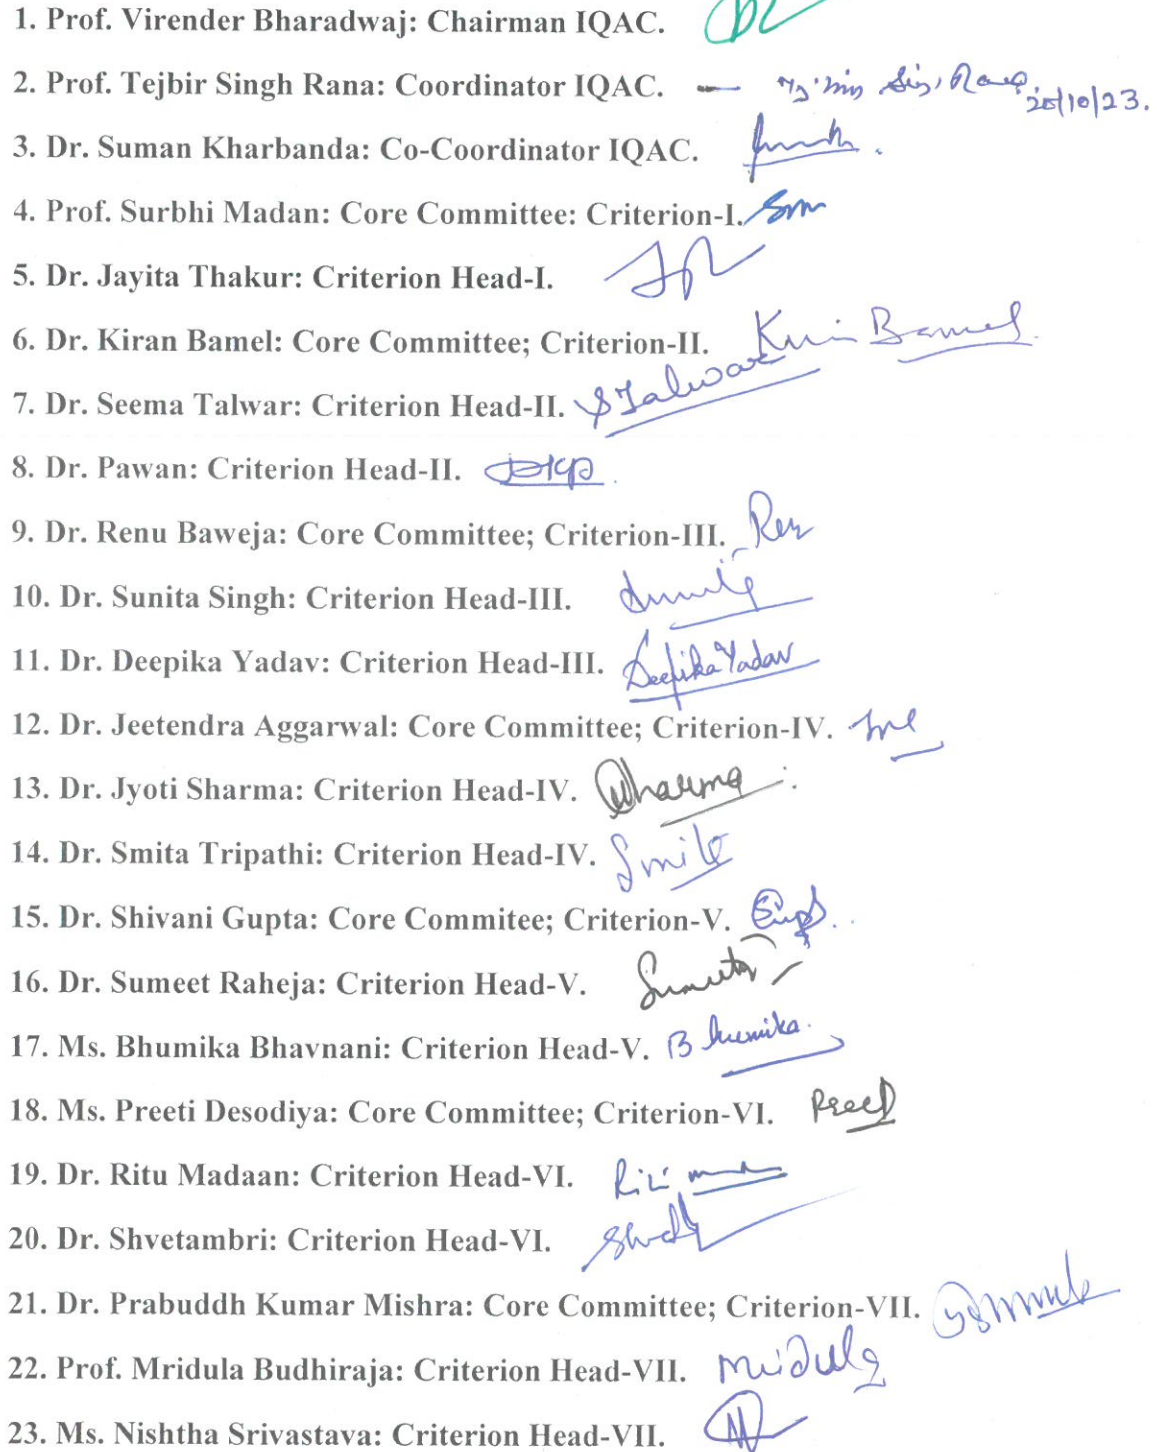 1. Prof. Virender Bharadwaj: Chairman IQAC.
2. Prof. Tejbir Singh Rana: Coordinator IQAC. — Rana 20/10/23.
3. Dr. Suman Kharbanda: Co-Coordinator IQAC.
4. Prof. Surbhi Madan: Core Committee: Criterion-I.
5. Dr. Jayita Thakur: Criterion Head-I.
6. Dr. Kiran Bamel: Core Committee; Criterion-II. Kiran Bamel
7. Dr. Seema Talwar: Criterion Head-II. STalwar
8. Dr. Pawan: Criterion Head-II.
9. Dr. Renu Baweja: Core Committee; Criterion-III.
10. Dr. Sunita Singh: Criterion Head-III.
11. Dr. Deepika Yadav: Criterion Head-III. Deepika Yadav
12. Dr. Jeetendra Aggarwal: Core Committee; Criterion-IV.
13. Dr. Jyoti Sharma: Criterion Head-IV.
14. Dr. Smita Tripathi: Criterion Head-IV.
15. Dr. Shivani Gupta: Core Commitee; Criterion-V.
16. Dr. Sumeet Raheja: Criterion Head-V.
17. Ms. Bhumika Bhavnani: Criterion Head-V. Bhumika
18. Ms. Preeti Desodiya: Core Committee; Criterion-VI.
19. Dr. Ritu Madaan: Criterion Head-VI.
20. Dr. Shvetambri: Criterion Head-VI.
21. Dr. Prabuddh Kumar Mishra: Core Committee; Criterion-VII.
22. Prof. Mridula Budhiraja: Criterion Head-VII. Mridula
23. Ms. Nishtha Srivastava: Criterion Head-VII.